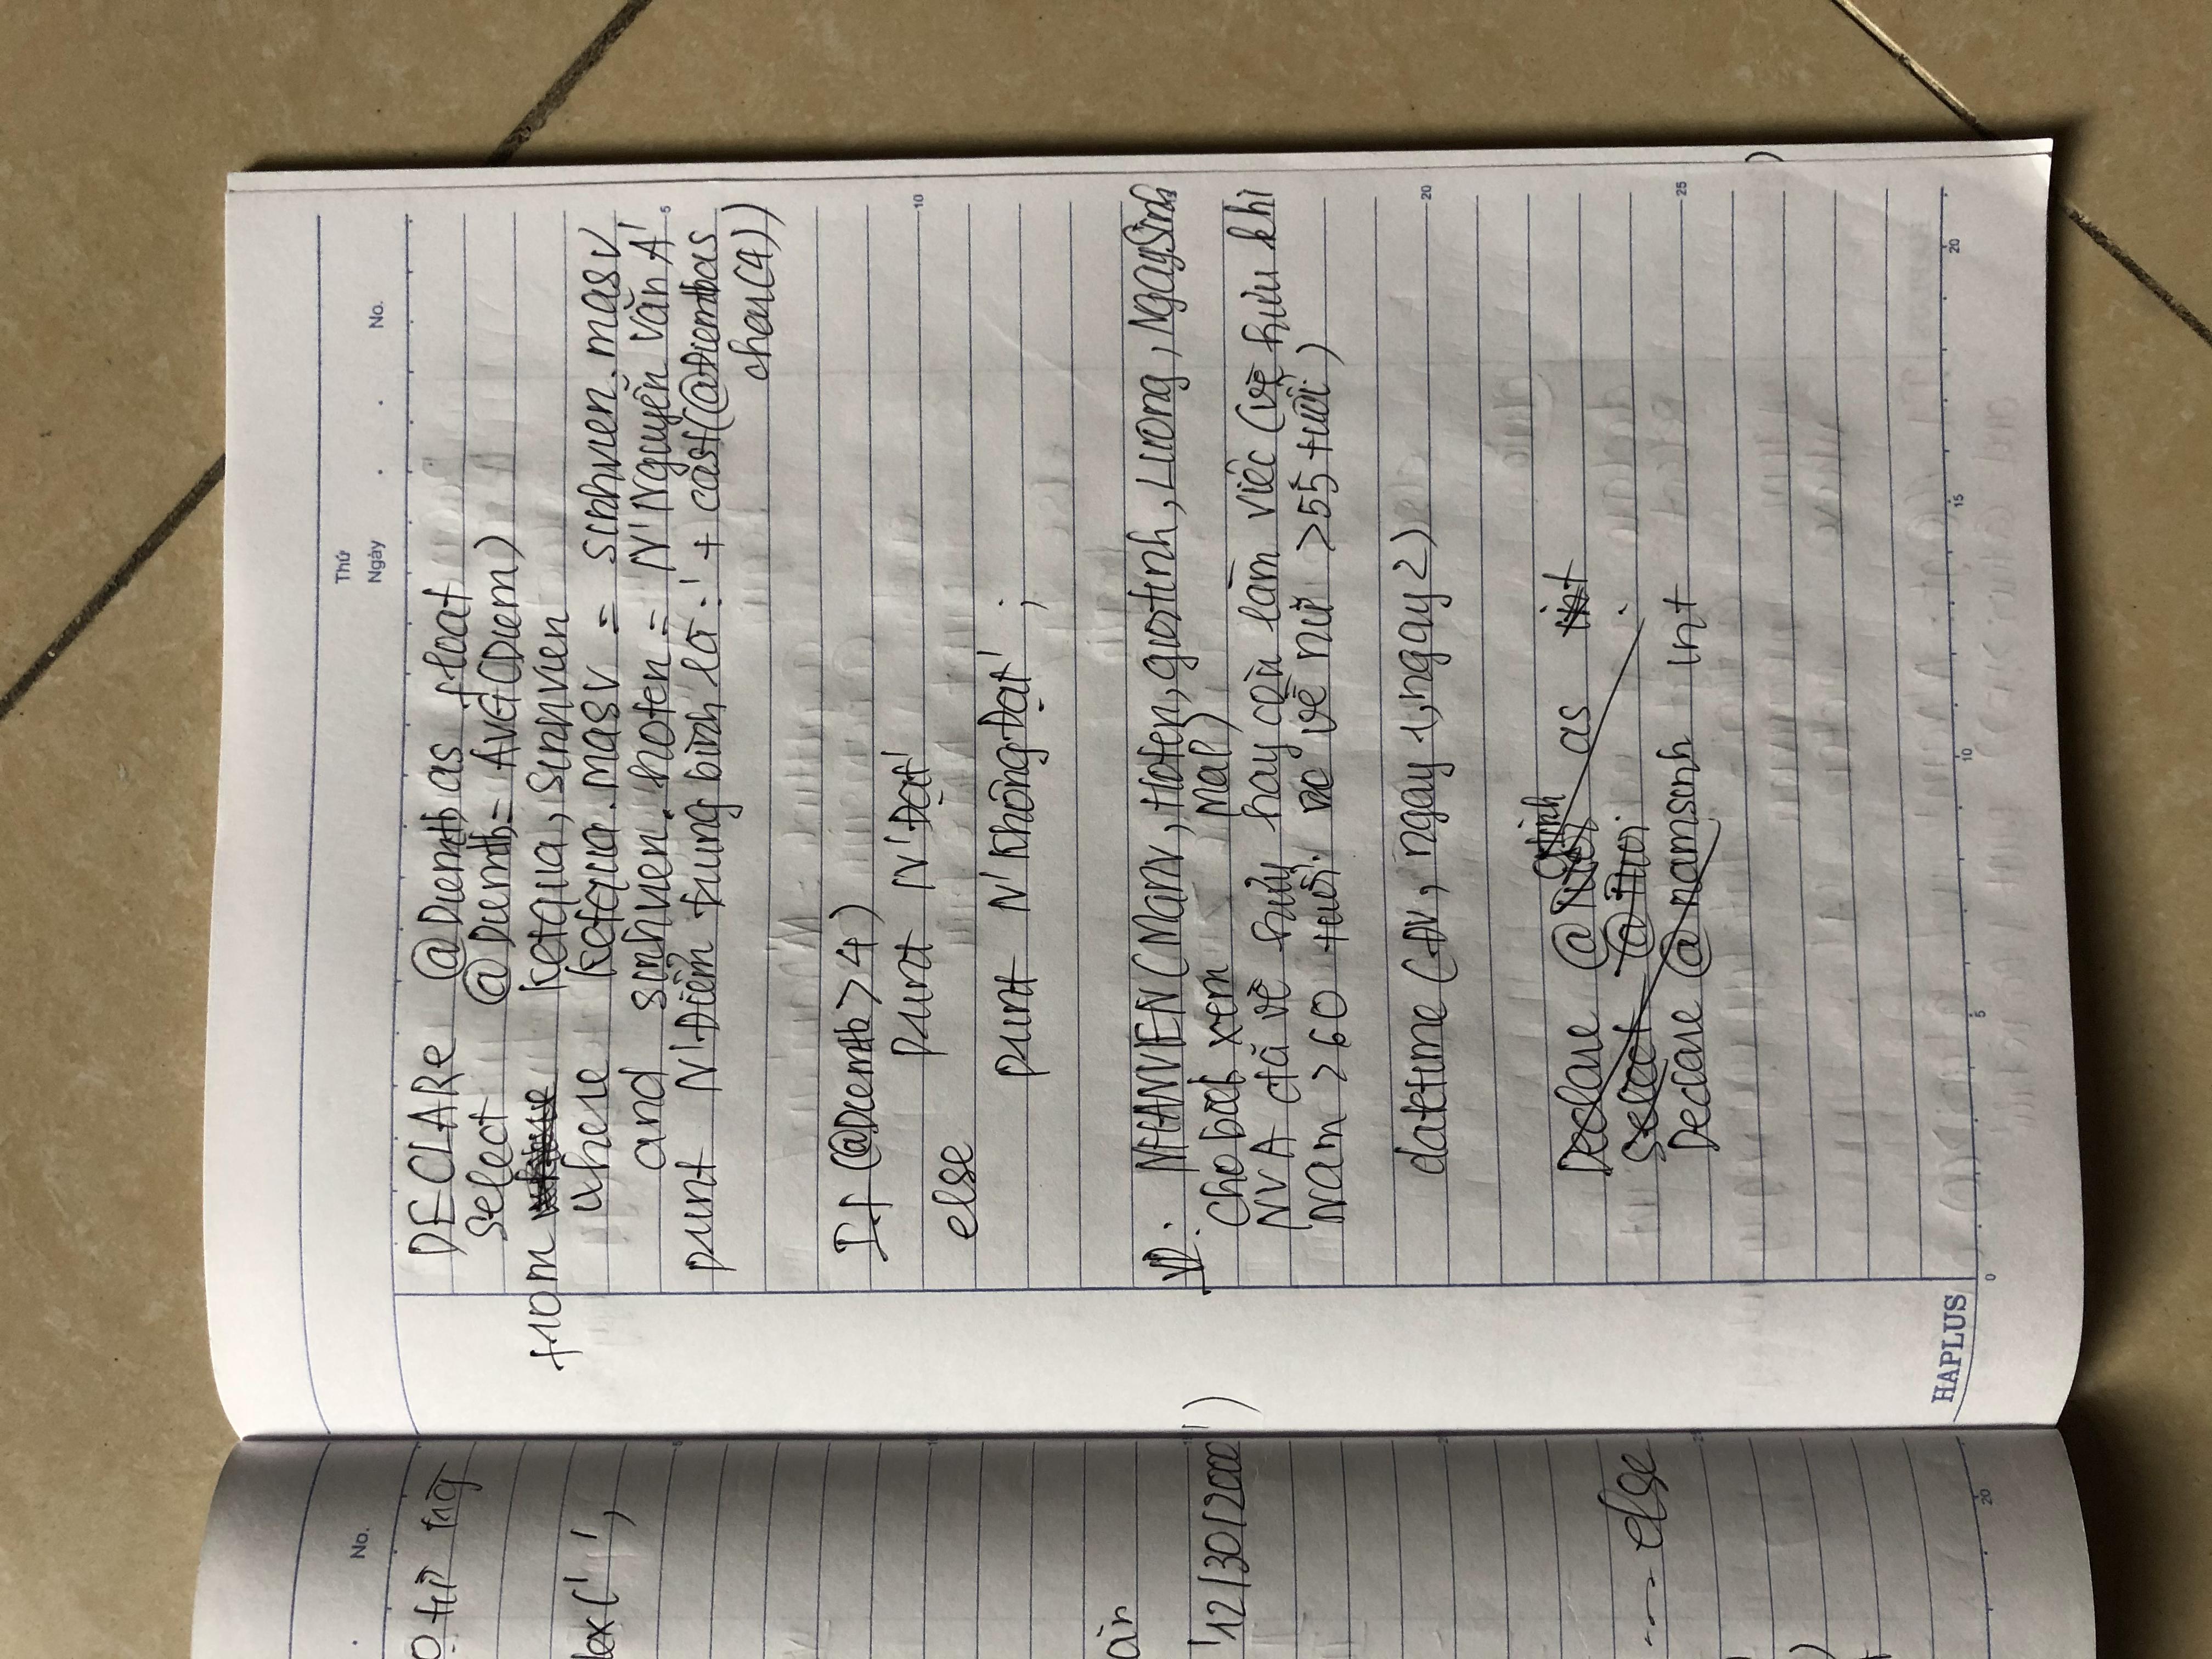 No.
ọ từ
lex(' ',
'12/30/2000')
---- else
20
Thứ
Ngày . . No.
DECLARE @Diemtb as float
Select @Diemtb = AVG(Diem)
from Ketqua, Sinhvien
where Ketqua.masv = sinhvien.masv
and sinhvien.hoten = N'Nguyễn Văn A'
print N'Điểm trung bình là:' + cast(@Diemtb as
char(4))
If (@Diemtb > 4)
print N'Đạt'
else
print N'Không Đạt' ;
VD: NHANVIEN(Manv, Hoten, gioitinh, Luong, NgaySinh
cho biết xem MaP)
NVA đã về hưu hay còn làm việc (về hưu khi
Nam >60 tuổi về nữ >55 tuổi)
datetime (ĐV, ngay 1, ngay 2)
gtinh
Declare @Tuoi as int
Select @Tuoi
Declare @namsinh int
5
10
20
25
HAPLUS
0 5 10 15 20